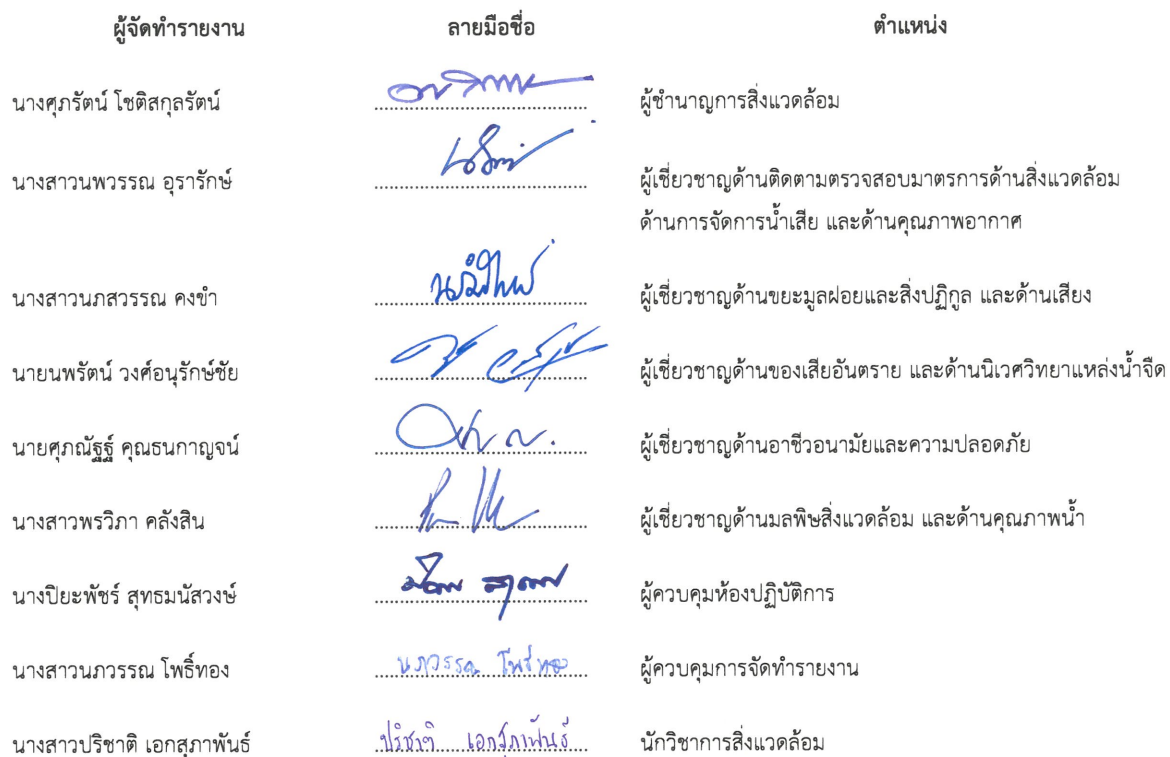 ผู้จัดทำรายงาน ลายมือชื่อ ตำแหน่ง
นางศุภรัตน์ โชติสกุลรัตน์ ผู้ชำนาญการสิ่งแวดล้อม
นางสาวนพวรรณ อุรารักษ์ ผู้เชี่ยวชาญด้านติดตามตรวจสอบมาตรการด้านสิ่งแวดล้อม
ด้านการจัดการน้ำเสีย และด้านคุณภาพอากาศ
นางสาวนภสวรรณ คงขำ ผู้เชี่ยวชาญด้านขยะมูลฝอยและสิ่งปฏิกูล และด้านเสียง
นายนพรัตน์ วงศ์อนุรักษ์ชัย ผู้เชี่ยวชาญด้านของเสียอันตราย และด้านนิเวศวิทยาแหล่งน้ำจืด
นายศุภณัฐฐ์ คุณธนกาญจน์ ผู้เชี่ยวชาญด้านอาชีวอนามัยและความปลอดภัย
นางสาวพรวิภา คลังสิน ผู้เชี่ยวชาญด้านมลพิษสิ่งแวดล้อม และด้านคุณภาพน้ำ
นางปิยะพัชร์ สุทธมนัสวงษ์ ผู้ควบคุมห้องปฏิบัติการ
นางสาวนภวรรณ โพธิ์ทอง นภวรรณ โพธิ์ทอง ผู้ควบคุมการจัดทำรายงาน
นางสาวปริชาติ เอกสุภาพันธ์ ปริชาติ เอกสุภาพันธ์ นักวิชาการสิ่งแวดล้อม